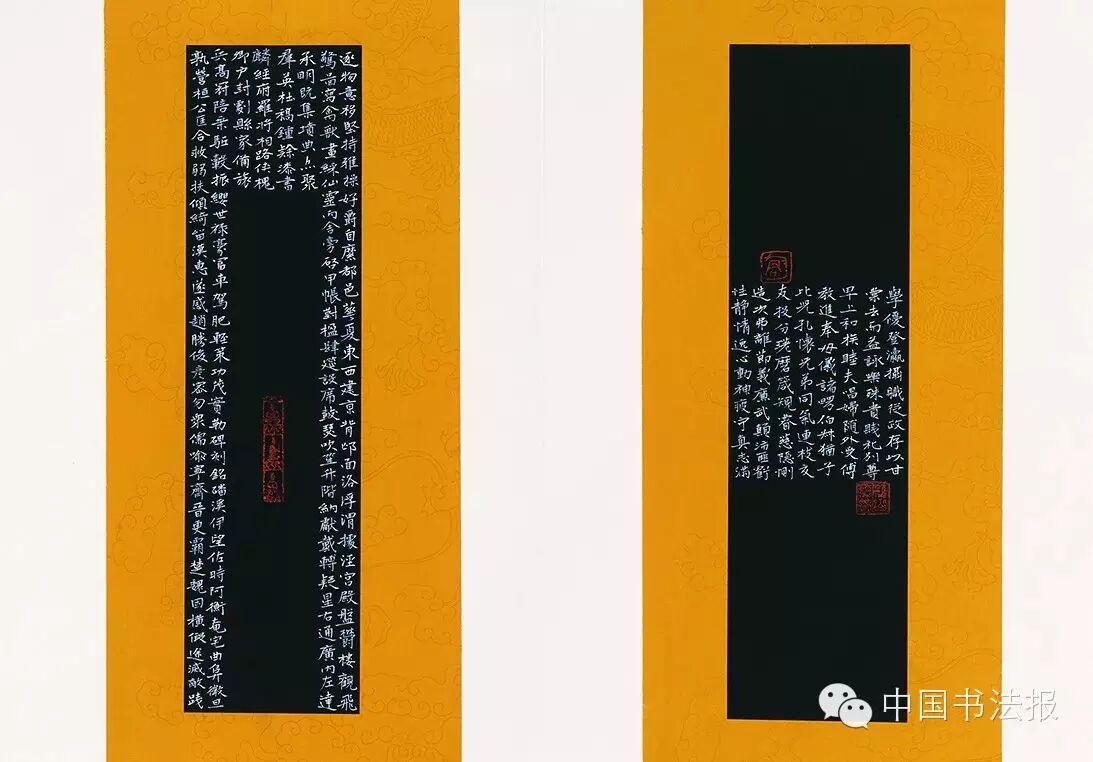 學優登瀛攝職從政存以甘
棠去而益詠樂殊貴賤礼別尊
卑上和睦夫唱婦隨外受傅
教進奉母儀諸伯叔猶子
比兒孔懷兄弟同氣連枝交
友投分磨箴規慈隱惻
造次弗離節義廉武顛沛匪虧
性静情逸心動神疲守真志滿
逐物意移堅持雅操好爵自縻都邑華夏東西建京背邙面洛浮渭據涇宮殿盤鬱樓觀飛
驚啚寫禽獸畫綵仙靈丙舍旁啓甲帳對楹肆筵設席鼓瑟吹笙升階納獻轉疑星右通廣內左達
承明既集墳典亦聚
羣英杜稿鍾隸漆書
經府羅將相路俠槐
卿户封縣家備旅
兵高冠陪輦驅轂振纓世祿富車駕肥輕策功茂實勒碑刻銘磻溪伊佐時阿衡奄宅曲阜微旦
孰營桓公匡合救弱扶傾綺漢惠感俊密勿儒寧齊晉更霸楚魏困橫假途滅踐
中国书法报